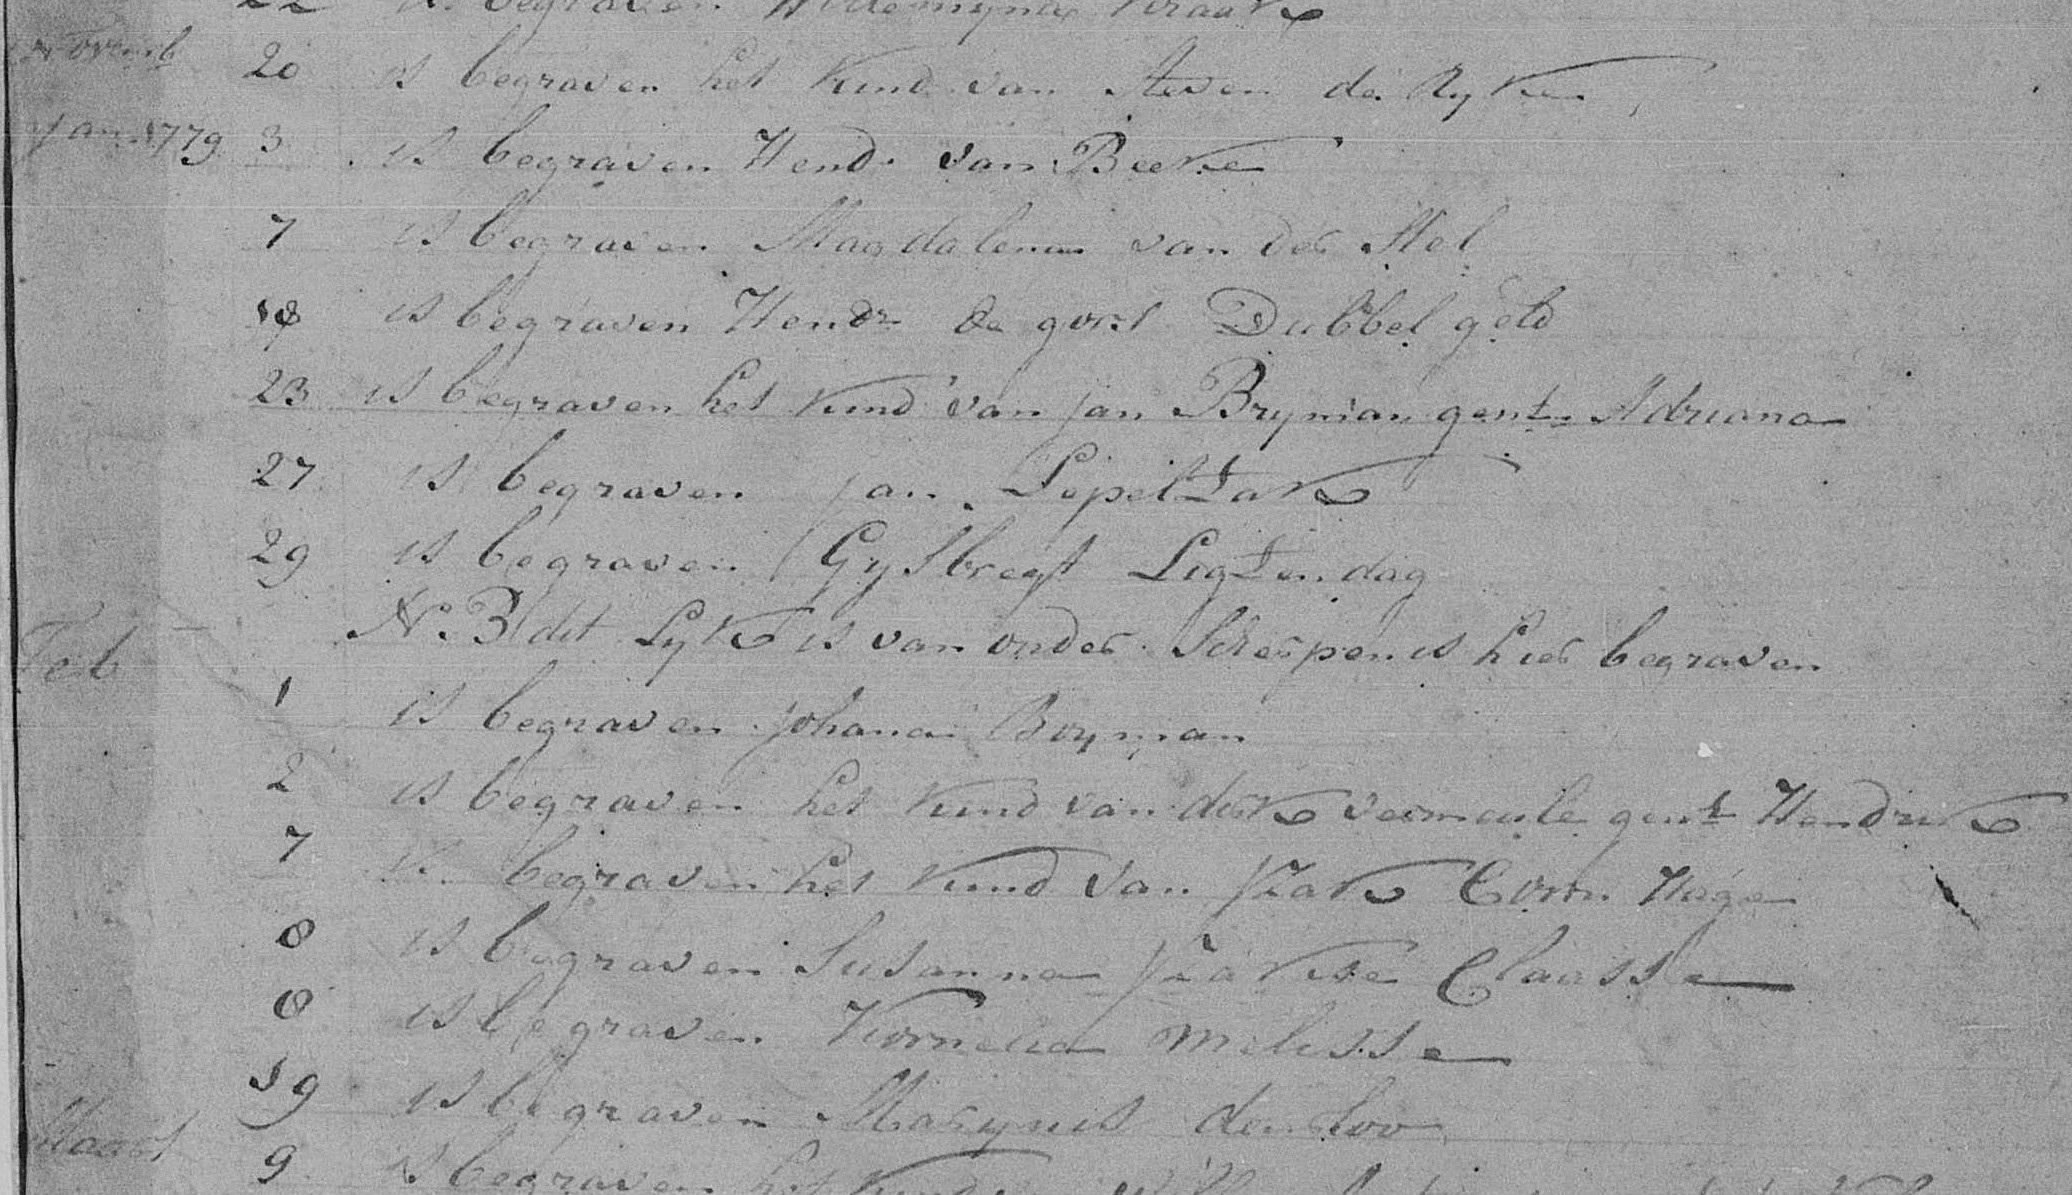 22 is begraven Willemyna Kraak
Novemb 20 is begraven het kind van Steven de Ryke
Jan. 1779 3 is begraven Hend. van Beeke
7 is begraven Magdalena van der Mel
18 is begraven Hendr de gorst Dubbel geld
23 is begraven het kind van Jan Bryman gent. Adriana
27 is begraven Jan Lepeltak
29 is begraven Gysbregt Ligtendag
N. B dit Lyk is van onder Scherpenis hier begraven
Feb 1 is begraven Johanna Boyman
2 is begraven het kind van dirk vermeule gent Hendrik
7 is begraven het kind van Izak Corn. Hage
8 is begraven Susanna Izakse Claasse
8 is begraven Kornelia Melisse
19 is begraven Marynis
Maart 9 is begraven het kind